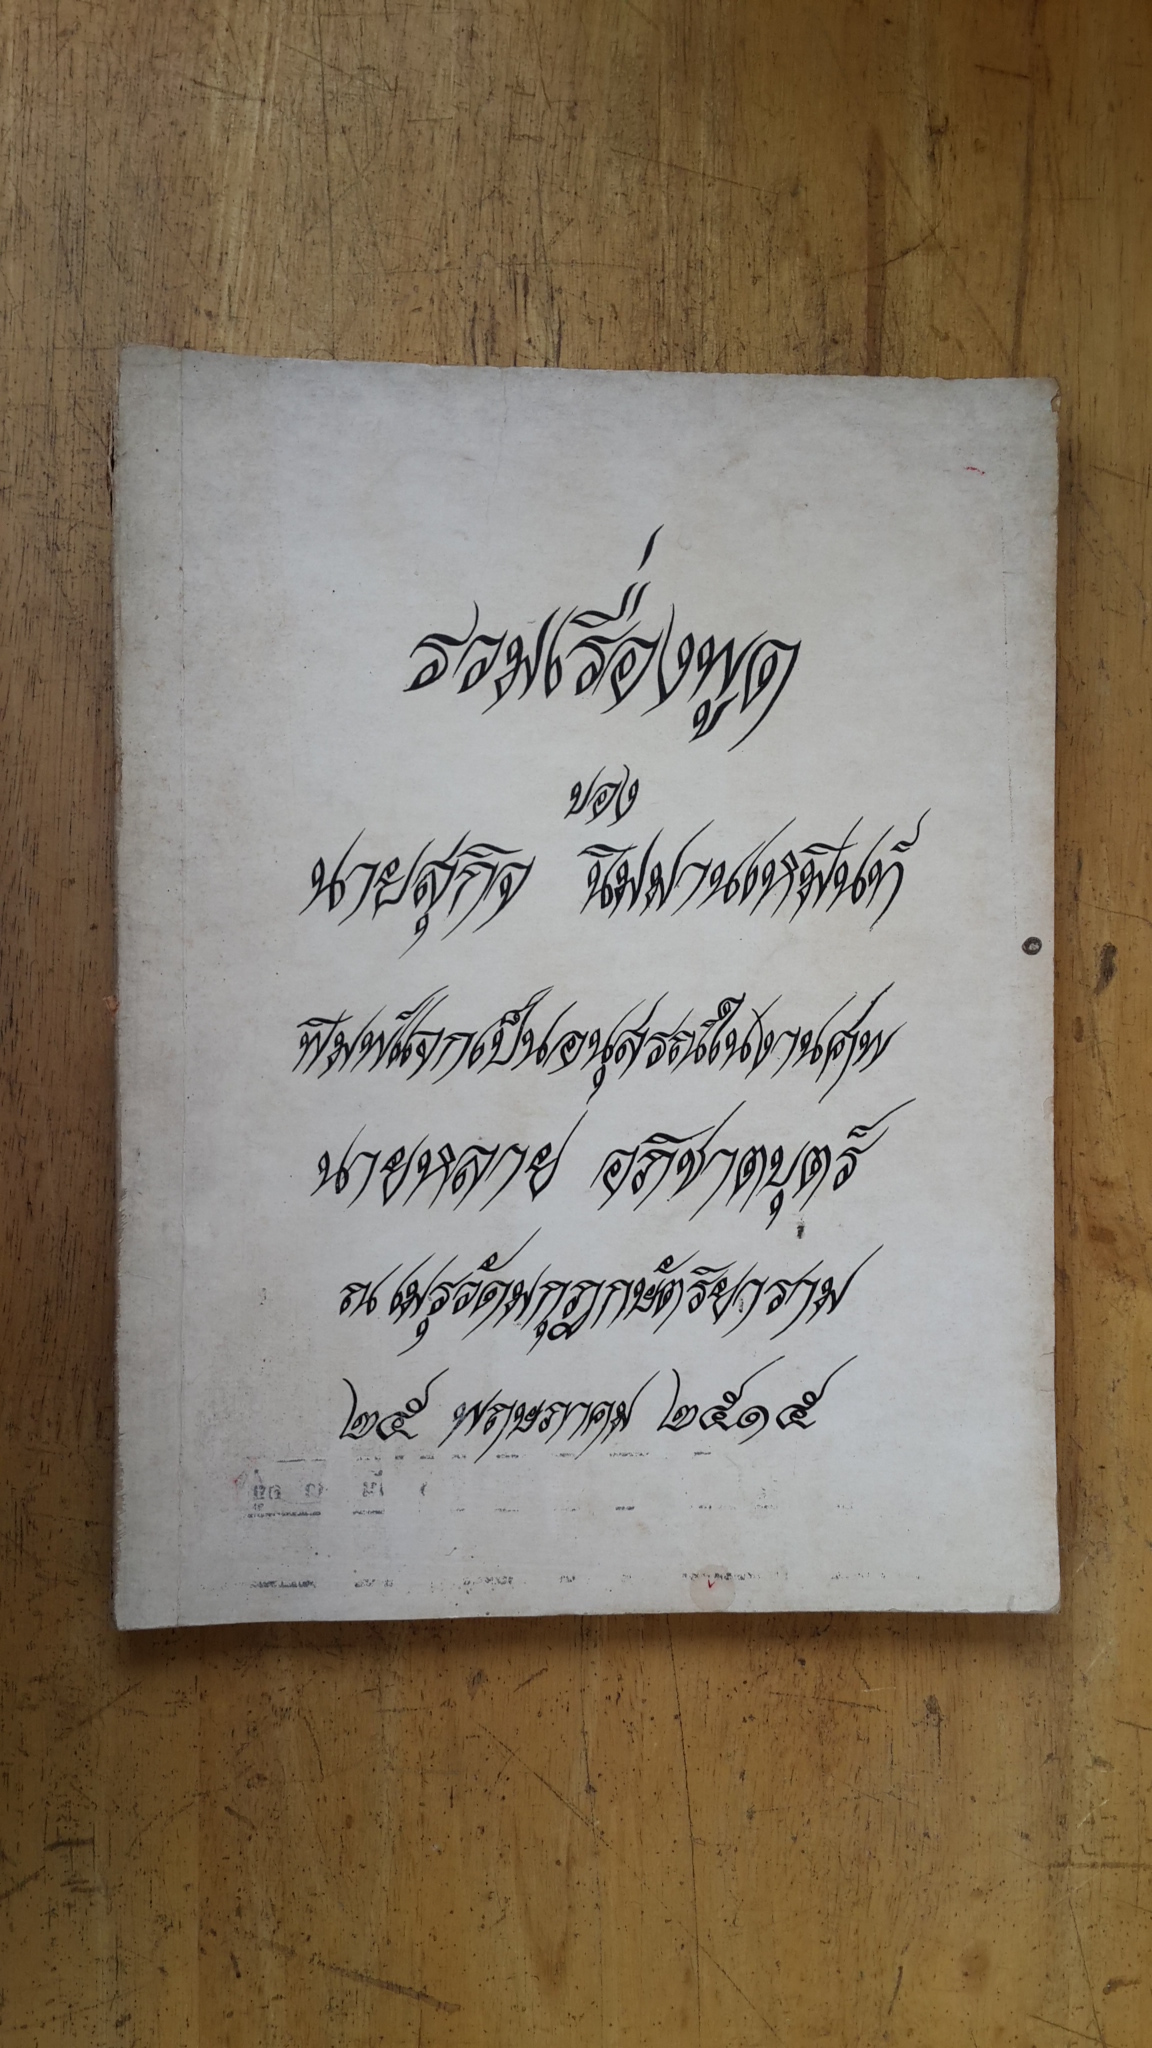 รวมเรื่องพูด
ของ
นายสุกิจ นิมมานเหมินท์
พิมพ์แจกเป็นอนุสรณ์ในงานศพ
นายหลาย อภิชาตบุตร์
ณ เมรุวัดมกุฏกษัตริยาราม
๒๕ พฤษภาคม ๒๕๑๕